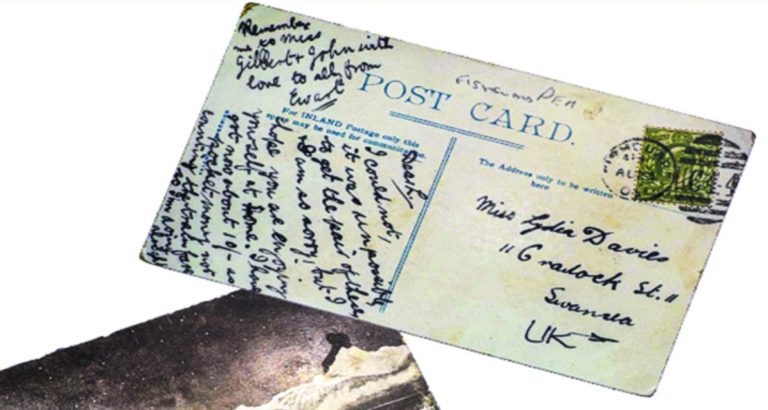 Remember
me to Miss
Gilbert & John with
love to all from
Ewart
FISHGUARD PEM
POST CARD.
For INLAND Postage only this
space may be used for communication.
The Address only to be written
here
Dear L
I could not,
it was impossible
to get the pair of these
I am so sorry! but I
hope you are enjoying
yourself at home. I have
got now about 10/- as
pocket money not
counting the train fare
so I'm doing
alright
Miss Lydia Davies
11 Cradock St.
Swansea
UK
AU